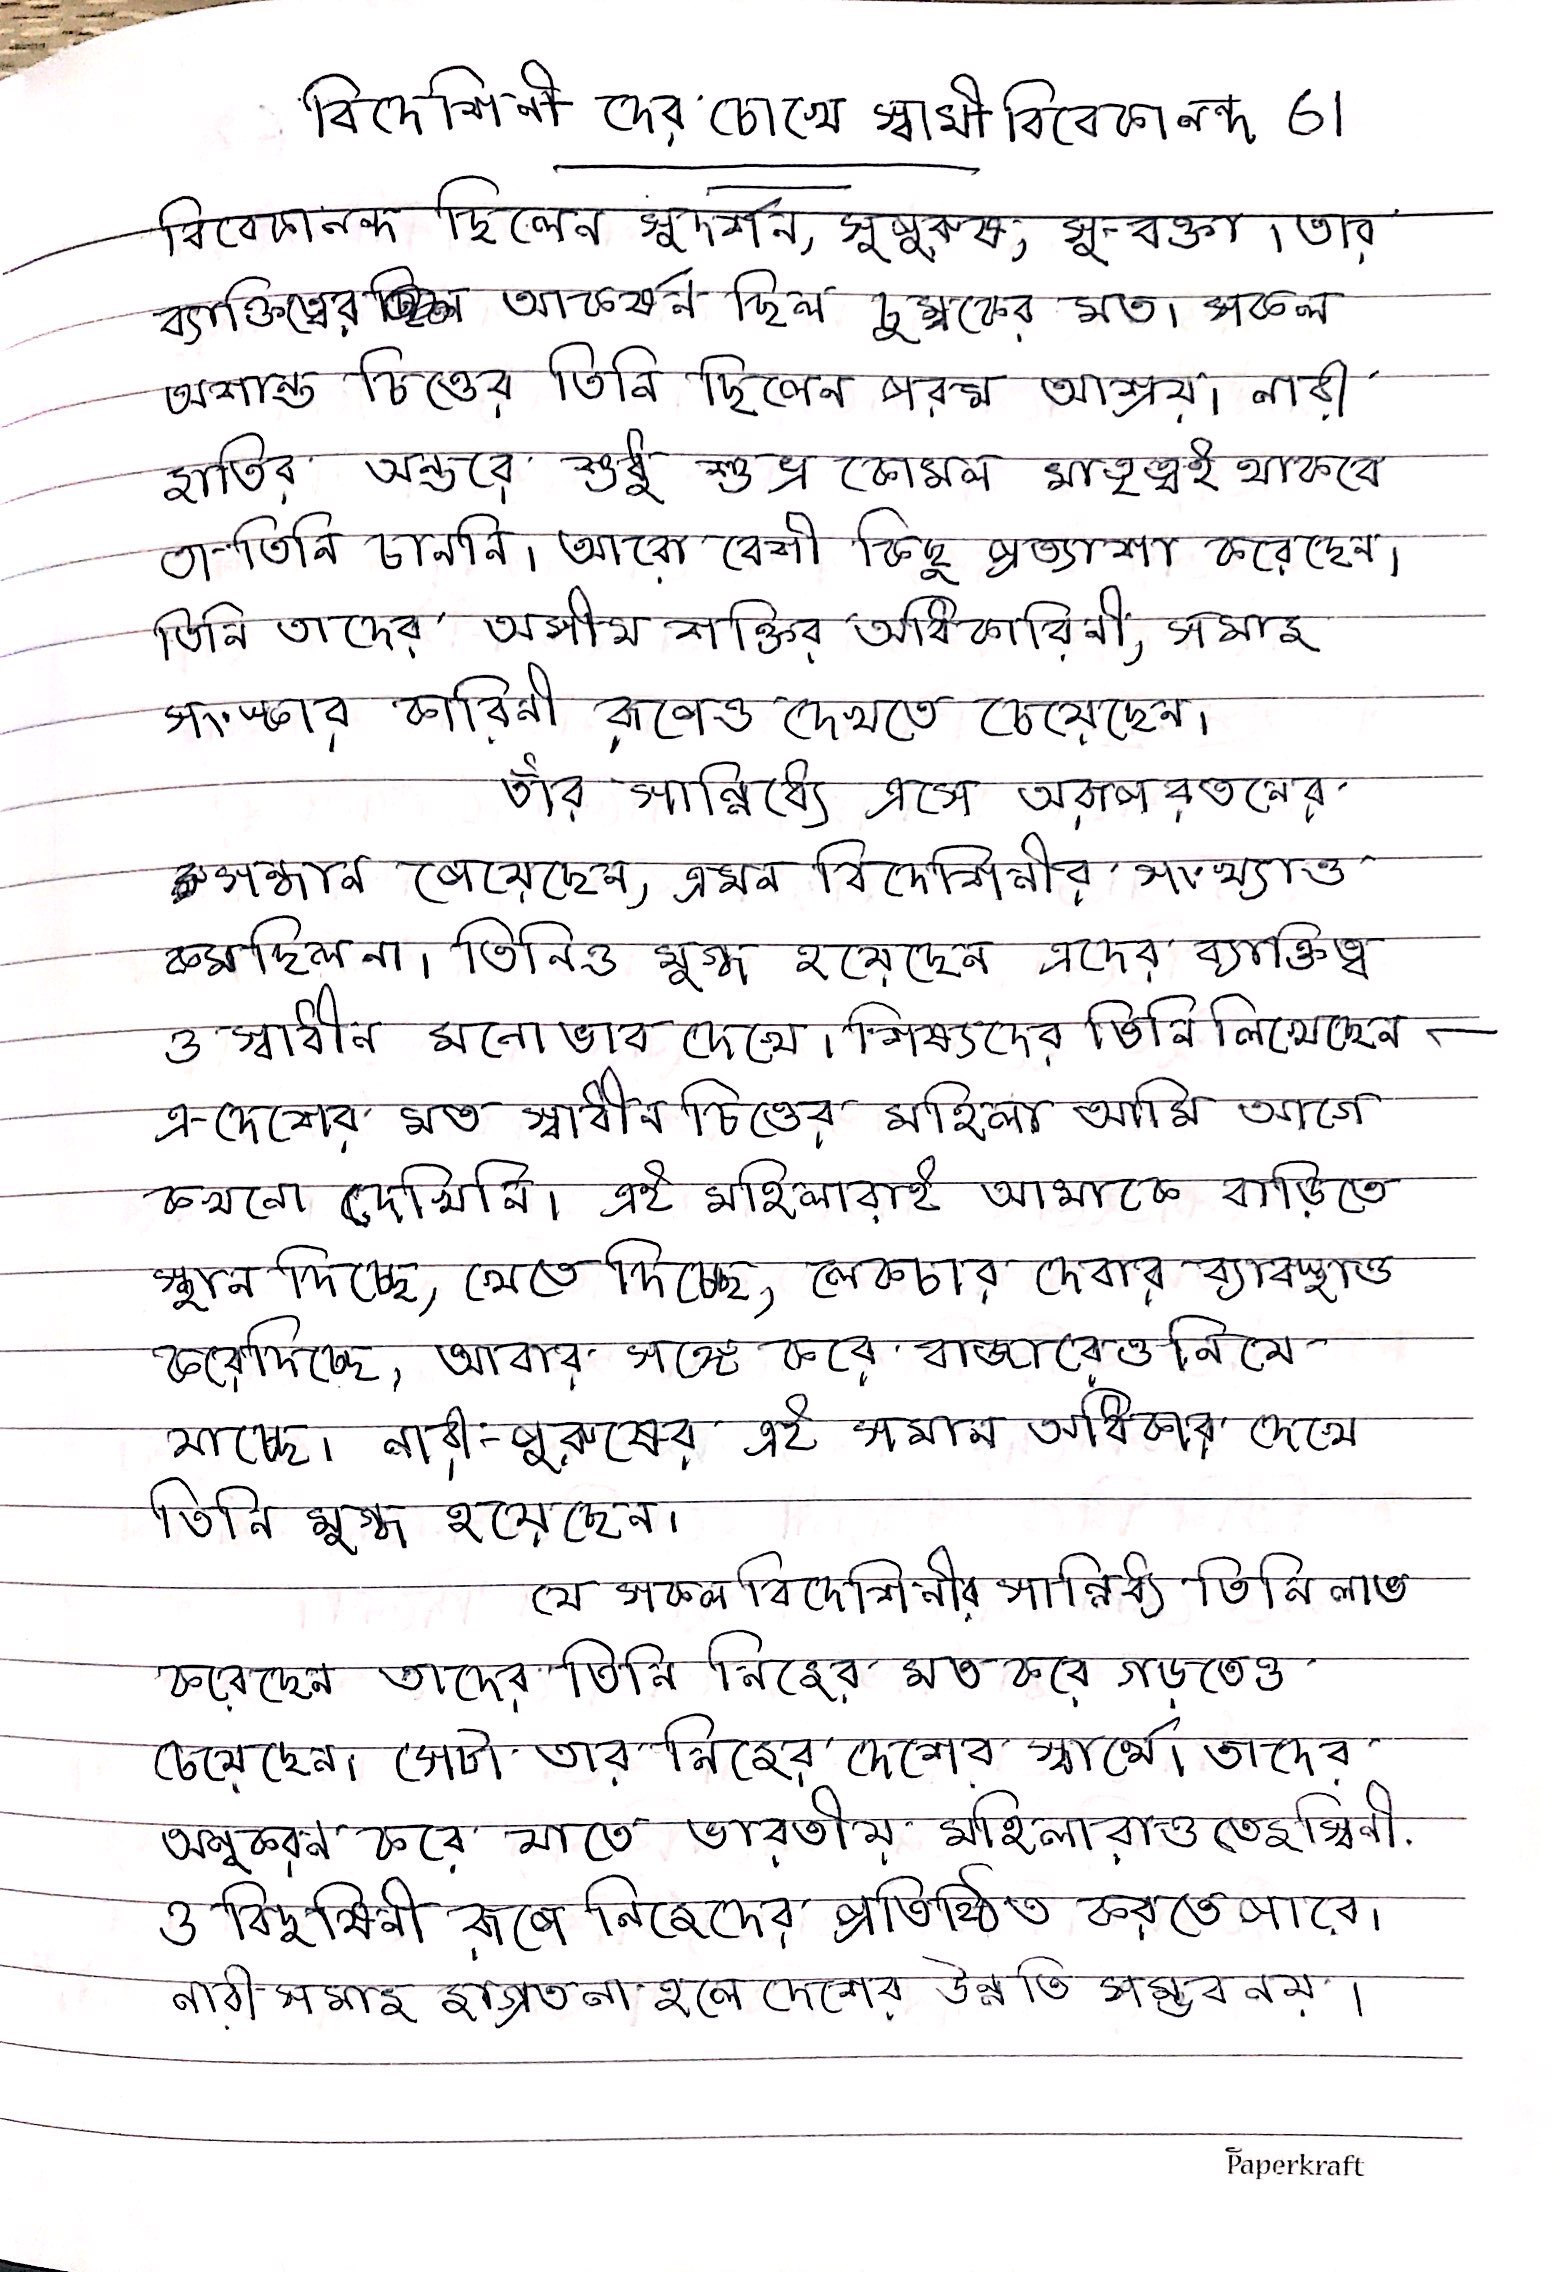 বিদেশিনী দের চোখে স্বামী বিবেকানন্দ ৬।
বিবেকানন্দ ছিলেন সুদর্শন, সুপুরুষ, সু-বক্তা। তার
ব্যাক্তিত্বের আকর্ষন ছিল চুম্বকের মত। সকল
অশান্ত চিত্তের তিনি ছিলেন পরম আশ্রয়। নারী
জাতির অন্তরে শুধু শুভ্র কোমল মাতৃত্বই থাকবে
তা-তিনি চাননি। আরো বেশী কিছু প্রত্যাশা করেছেন।
তিনি তাদের অসীম শক্তির অধিকারিনী, সমাজ
সংস্কার কারিনী রূপেও দেখতে চেয়েছেন।
তাঁর সান্নিধ্যে এসে অরূপ রতনের
সন্ধান পেয়েছেন, এমন বিদেশিনীর সংখ্যাও
কম ছিল না। তিনিও মুগ্ধ হয়েছেন এদের ব্যাক্তিত্ব
ও স্বাধীন মনোভাব দেখে। শিষ্যদের তিনি লিখেছেন —
এ-দেশের মত স্বাধীন চিত্তের মহিলা আমি আগে
কখনো দেখিনি। এই মহিলারাই আমাকে বাড়িতে
স্থান দিচ্ছে, খেতে দিচ্ছে, লেকচার দেবার ব্যাবস্থাও
করেদিচ্ছে, আবার সঙ্গে করে বাজারেও নিয়ে
যাচ্ছে। নারী-পুরুষের এই সমান অধিকার দেখে
তিনি মুগ্ধ হয়েছেন।
যে সকল বিদেশিনীর সান্নিধ্য তিনি লাভ
করেছেন তাদের তিনি নিজের মত করে গড়তেও
চেয়েছেন। সেটা তার নিজের দেশের স্বার্থে। তাদের
অনুকরন করে যাতে ভারতীয় মহিলারাও তেজস্বিনী
ও বিদুষিনী রূপে নিজেদের প্রতিষ্ঠিত করতে পারে।
নারী সমাজ জাগ্রত না হলে দেশের উন্নতি সম্ভব নয়।
Paperkraft